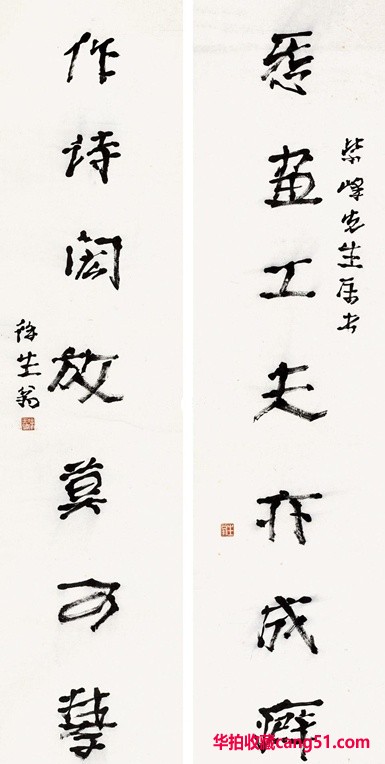 紫峰先生属书
㤅畫工夫亦成癖
作詩閎放莫可攀
徐生翁
华拍收藏cang51.com